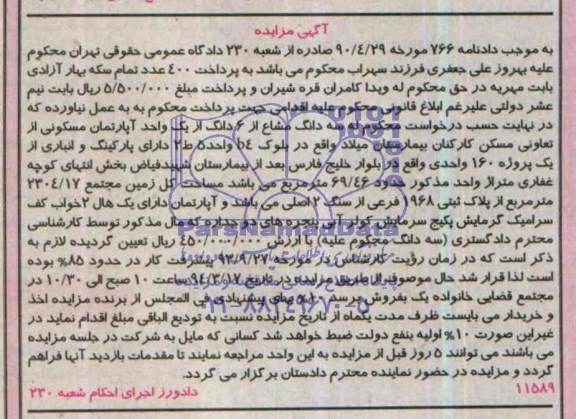 آگهی مزایده
به موجب دادنامه ۷۶۶ مورخه ۹۰/۴/۲۹ صادره از شعبه ۲۳۰ دادگاه عمومی حقوقی تهران محکوم
علیه بهروز علی جعفری فرزند سهراب محکوم می باشد به پرداخت ۴۰۰ عدد تمام سکه بهار آزادی
بابت مهریه در حق محکوم له ویدا کامران قره شیران و پرداخت مبلغ ۵/۵۰۰/۰۰۰ ریال بابت نیم
عشر دولتی علیرغم ابلاغ قانونی محکوم علیه اقدامی جهت پرداخت محکوم به به عمل نیاورده که
در نهایت حسب درخواست محکوم له سه دانگ مشاع از ۶ دانگ از یک واحد آپارتمان مسکونی از
تعاونی مسکن کارکنان بیمارستان میلاد واقع در بلوک b۴ واحد۵ ط۲ دارای پارکینگ و انباری از
یک پروژه ۱۶۰ واحدی واقع در بلوار خلیج فارس بعد از بیمارستان شهیدفیاض بخش انتهای کوچه
غفاری متراژ واحد مذکور حدود ۶۹/۴۶ مترمربع می باشد مساحت کل زمین مجتمع ۲۳۰۴/۱۷
مترمربع از پلاک ثبتی ۹۶۸ فرعی از سنگ ۲ اصلی می باشد و آپارتمان دارای یک هال ۲خواب کف
سرامیک گرمایش پکیج سرمایش کولر آبی پنجره های دو جداره که مال مذکور توسط کارشناسی
محترم دادگستری (سه دانگ محکوم علیه) با ارزش ۴۵۰/۰۰۰/۰۰۰ ریال تعیین گردیده لازم به
ذکر است که در زمان رؤیت کارشناس در مورخه ۹۳/۹/۲۷ پیشرفت کار در حدود ۸۵% بوده
است لذا قرار شد حال موصوف از طریق مزایده در تاریخ ۹۴/۳/۱۷ ساعت ۱۰ صبح الی ۱۰/۳۰ در
مجتمع قضایی خانواده یک بفروش برسد ۱۰% بهای پیشنهادی فی المجلس از برنده مزایده اخذ
و خریدار می بایست ظرف مدت یکماه از تاریخ مزایده نسبت به تودیع الباقی مبلغ اقدام نماید در
غیراین صورت ۱۰% اولیه بنفع دولت ضبط خواهد شد کسانی که مایل به شرکت در جلسه مزایده
می باشند می توانند ۵ روز قبل از مزایده به این واحد مراجعه نمایند تا مقدمات بازدید آنها فراهم
گردد و مزایده در حضور نماینده محترم دادستان برگزار می گردد.
۱۱۵۸۹ دادورز اجرای احکام شعبه ۲۳۰
ParsNamadData